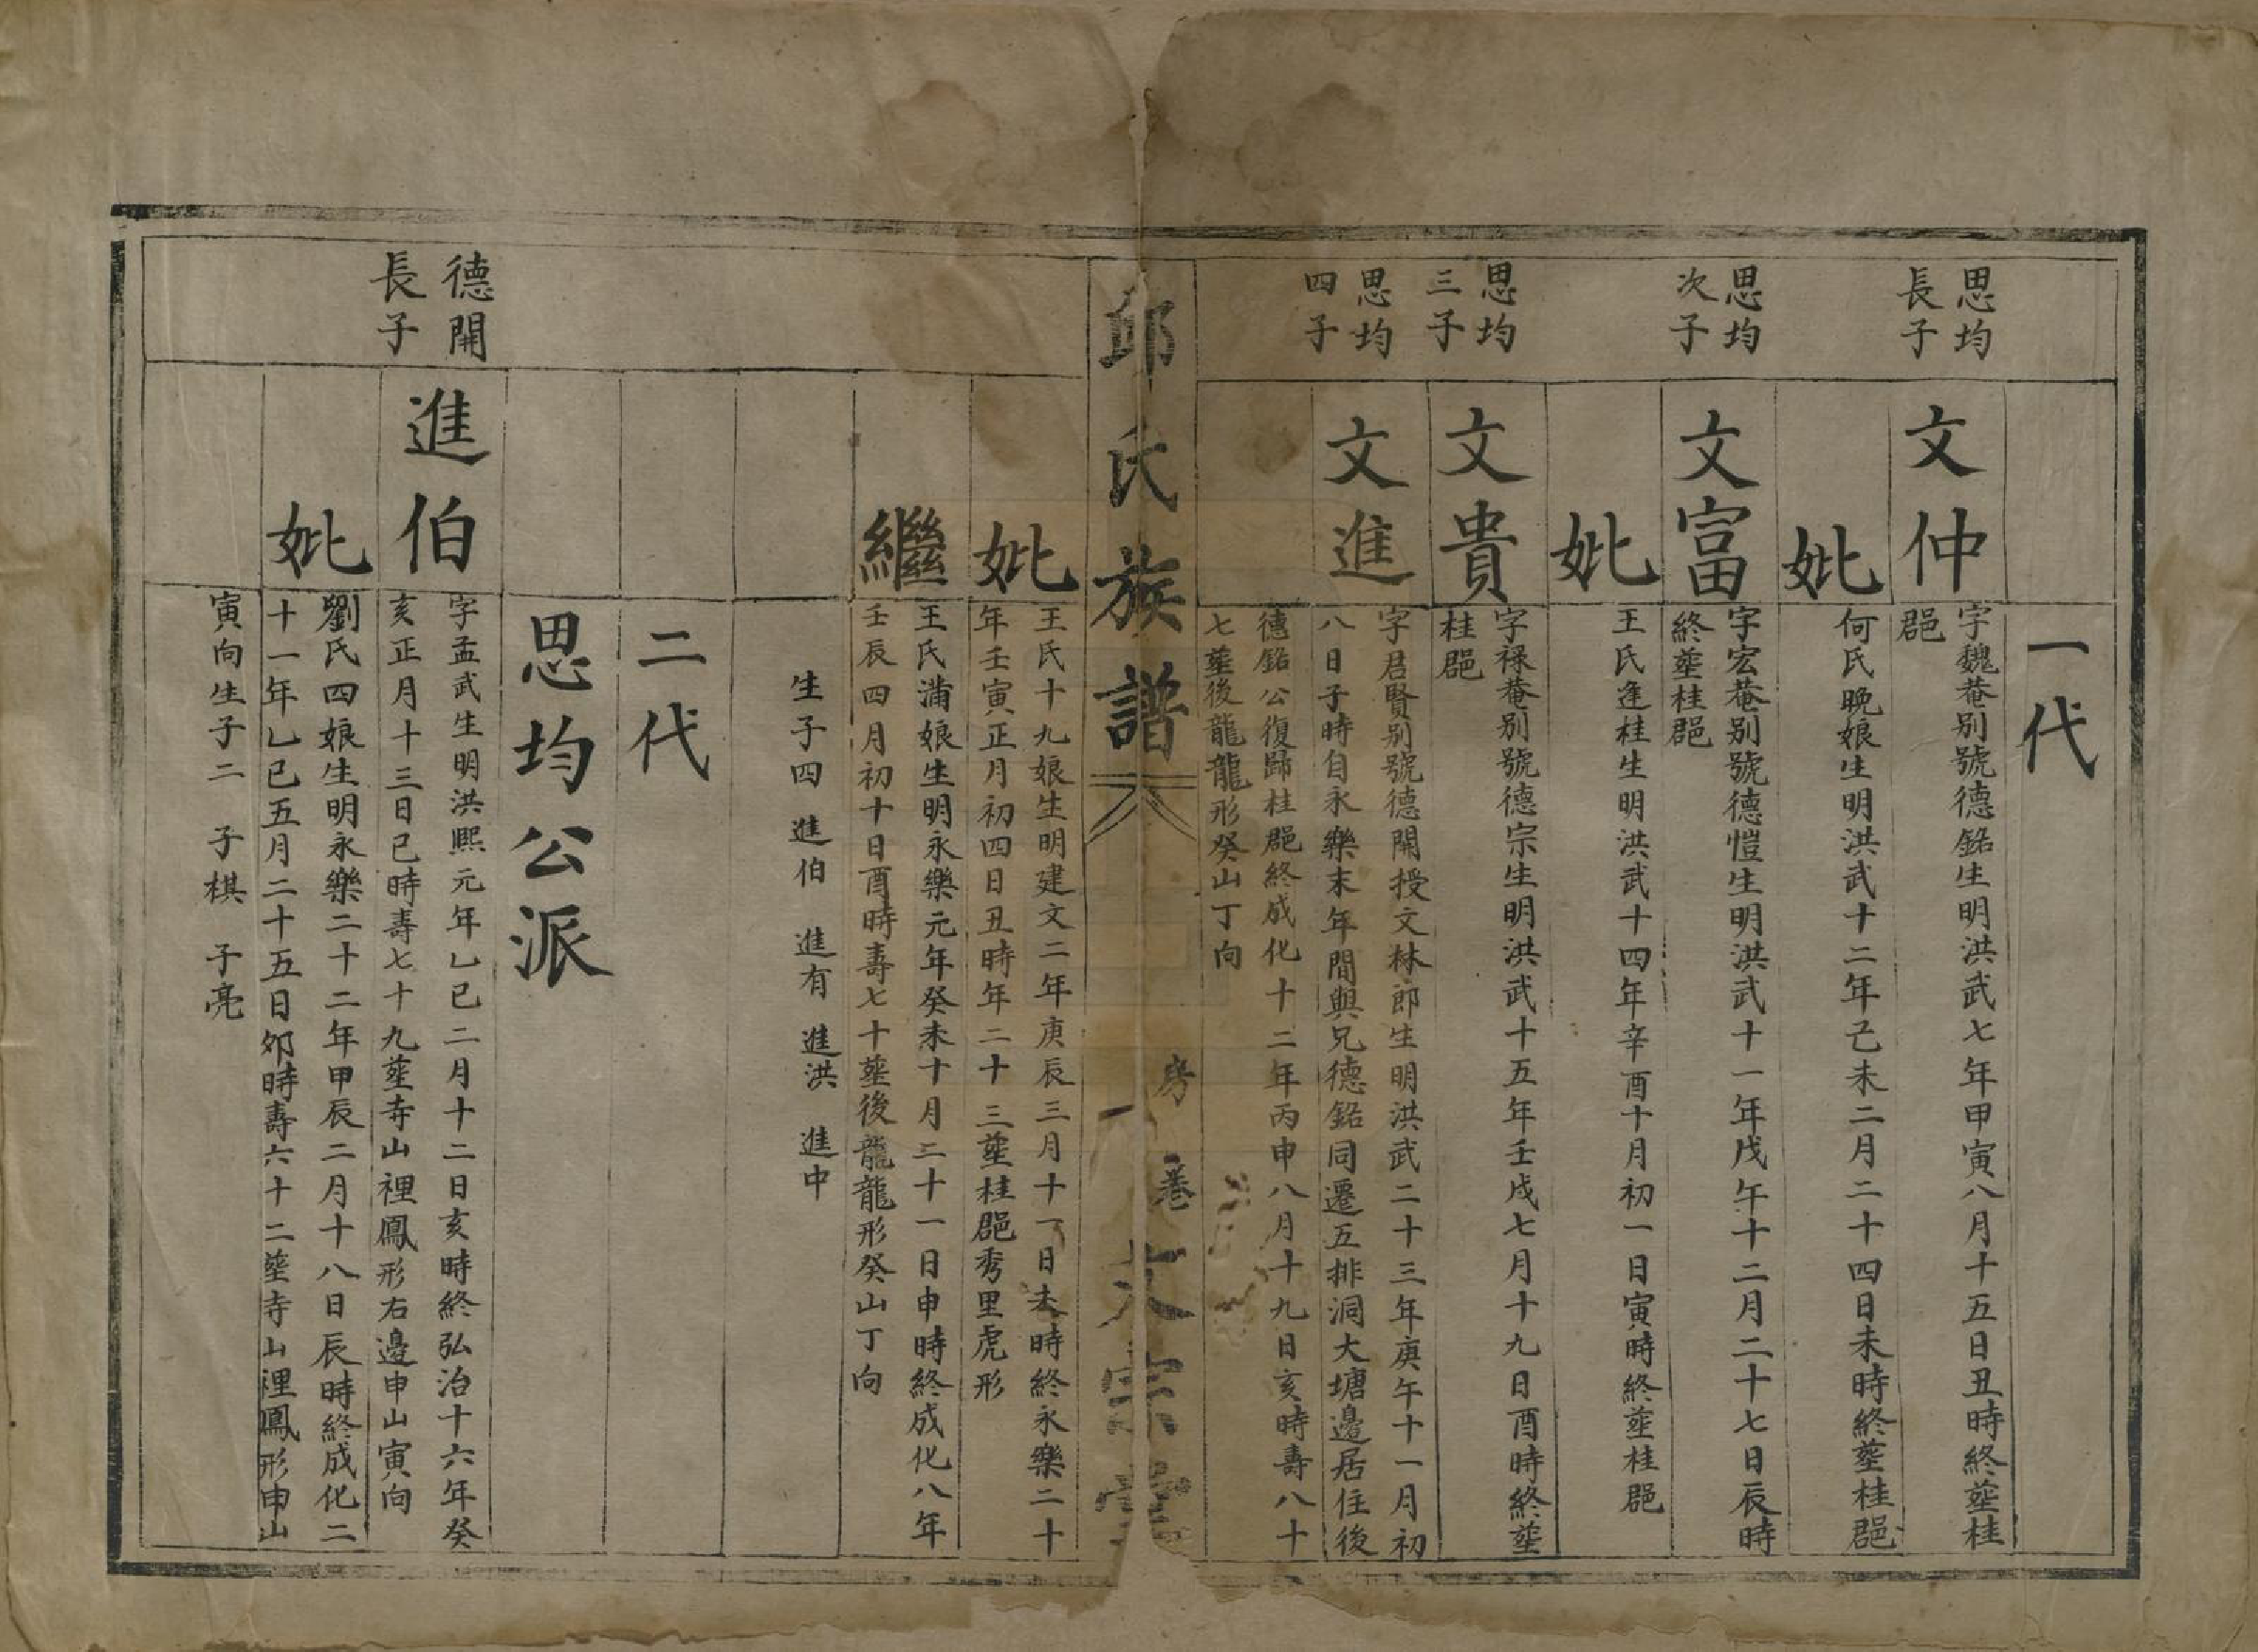 一代
思均
長子
文仲
字魏菴别號德銘生明洪武七年甲寅八月十五日丑時終塟桂
郡
妣
何氏晚娘生明洪武十二年己未二月二十四日未時終塟桂郡
思均
次子
文富
字宏菴别號德愷生明洪武十一年戊午十二月二十七日辰時
終塟桂郡
妣
王氏逢桂生明洪武十四年辛酉十月初一日寅時終塟桂郡
思均
三子
文貴
字禄菴别號德宗生明洪武十五年壬戌七月十九日酉時終塟
桂郡
思均
四子
文進
字君賢别號德開授文林郎生明洪武二十三年庚午十一月初
八日子時自永樂末年間與兄德銘同遷五排洞大塘邊居住後
德銘公復歸桂郡終成化十二年丙申八月十九日亥時壽八十
七塟後龍龍形癸山丁向
邱氏族譜
房
卷
大宗堂
妣
王氏十九娘生明建文二年庚辰三月十一日未時終永樂二十
年壬寅正月初四日丑時年二十三塟桂郡秀里虎形
繼
王氏滿娘生明永樂元年癸未十月二十一日申時終成化八年
壬辰四月初十日酉時壽七十塟後龍龍形癸山丁向
生子四 進伯 進有 進洪 進中
二代
思均公派
德開
長子
進伯
字孟武生明洪熙元年乙巳二月十二日亥時終弘治十六年癸
亥正月十三日巳時壽七十九塟寺山裡鳳形右邊申山寅向
妣
劉氏四娘生明永樂二十二年甲辰二月十八日辰時終成化二
十一年乙巳五月二十五日夘時壽六十二塟寺山裡鳳形申山
寅向生子二 子棋 子亮